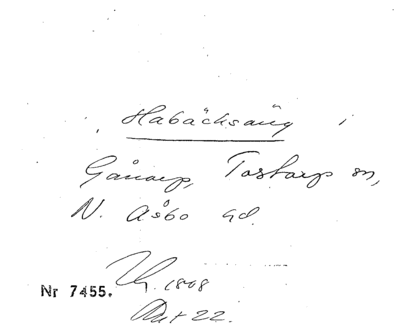 Habäcksäng i
Gånarp, Tåstarp sn,
N. Åsbo hd.
Nr 7455.
1808
Akt 22.